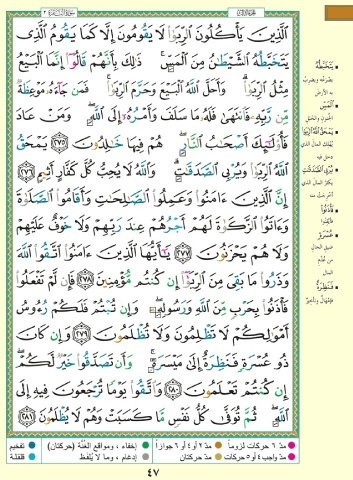 سُورَةُ البَقَرَةِ ٢
الَّذِينَ يَأْكُلُونَ الرِّبَوٰا۟ لَا يَقُومُونَ إِلَّا كَمَا يَقُومُ الَّذِى
يَتَخَبَّطُهُ الشَّيْطَٰنُ مِنَ الْمَسِّ ۚ ذَٰلِكَ بِأَنَّهُمْ قَالُوٓا۟ إِنَّمَا الْبَيْعُ
مِثْلُ الرِّبَوٰا۟ ۗ وَأَحَلَّ اللَّهُ الْبَيْعَ وَحَرَّمَ الرِّبَوٰا۟ ۚ فَمَن جَآءَهُۥ مَوْعِظَةٌ
مِّن رَّبِّهِۦ فَانتَهَىٰ فَلَهُۥ مَا سَلَفَ وَأَمْرُهُۥٓ إِلَى اللَّهِ ۖ وَمَنْ عَادَ
فَأُو۟لَٰٓئِكَ أَصْحَٰبُ النَّارِ ۖ هُمْ فِيهَا خَٰلِدُونَ ﴿٢٧٥﴾ يَمْحَقُ
اللَّهُ الرِّبَوٰا۟ وَيُرْبِى الصَّدَقَٰتِ ۗ وَاللَّهُ لَا يُحِبُّ كُلَّ كَفَّارٍ أَثِيمٍ ﴿٢٧٦﴾
إِنَّ الَّذِينَ ءَامَنُوا۟ وَعَمِلُوا۟ الصَّٰلِحَٰتِ وَأَقَامُوا۟ الصَّلَوٰةَ
وَءَاتَوُا۟ الزَّكَوٰةَ لَهُمْ أَجْرُهُمْ عِندَ رَبِّهِمْ وَلَا خَوْفٌ عَلَيْهِمْ
وَلَا هُمْ يَحْزَنُونَ ﴿٢٧٧﴾ يَٰٓأَيُّهَا الَّذِينَ ءَامَنُوا۟ اتَّقُوا۟ اللَّهَ
وَذَرُوا۟ مَا بَقِىَ مِنَ الرِّبَوٰٓا۟ إِن كُنتُم مُّؤْمِنِينَ ﴿٢٧٨﴾ فَإِن لَّمْ تَفْعَلُوا۟
فَأْذَنُوا۟ بِحَرْبٍ مِّنَ اللَّهِ وَرَسُولِهِۦ ۖ وَإِن تُبْتُمْ فَلَكُمْ رُءُوسُ
أَمْوَٰلِكُمْ لَا تَظْلِمُونَ وَلَا تُظْلَمُونَ ﴿٢٧٩﴾ وَإِن كَانَ
ذُو عُسْرَةٍ فَنَظِرَةٌ إِلَىٰ مَيْسَرَةٍ ۚ وَأَن تَصَدَّقُوا۟ خَيْرٌ لَّكُمْ ۖ
إِن كُنتُمْ تَعْلَمُونَ ﴿٢٨٠﴾ وَاتَّقُوا۟ يَوْمًا تُرْجَعُونَ فِيهِ إِلَى
اللَّهِ ۖ ثُمَّ تُوَفَّىٰ كُلُّ نَفْسٍ مَّا كَسَبَتْ وَهُمْ لَا يُظْلَمُونَ ﴿٢٨١﴾
يَتَخَبَّطُهُ
الْمَسِّ
يَمْحَقُ اللَّهُ الرِّبَوٰا۟
يُهلِك المال الذي
دخل فيه
يُرْبِى الصَّدَقَٰتِ
فَأْذَنُوا۟
عُسْرَةٍ
ضيق الحال
المال
فَنَظِرَةٌ
مدّ ٦ حركات لزوماً مدّ ٢ أو ٤ أو ٦ جوازاً إخفاء ، ومواقع الغُنَّة (حركتان) تفخيم
مدّ واجب ٤ أو ٥ حركات مدّ حركتان إدغام ، وما لا يُلفَظ قلقلة
٤٧